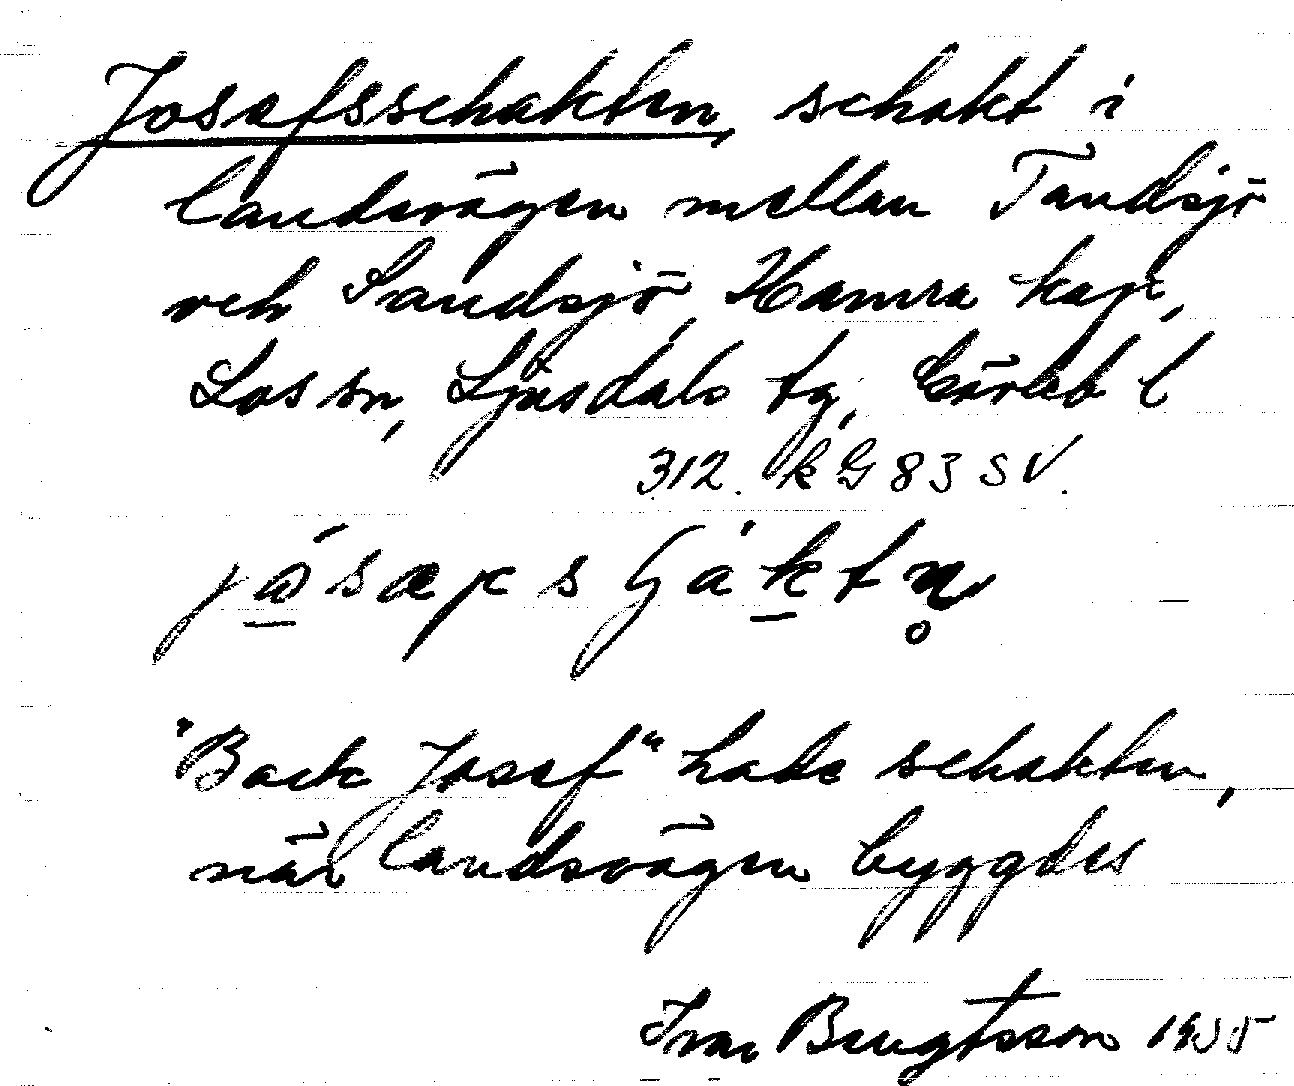 Josefsschakten, schakt i
landsvägen mellan Tandsjö
och Sandsjö, Hamra kap,
Los sn, Ljusdals tg, Gävleb l
312. kG 83 SV.
"Back Josef" hade schakten,
när landsvägen byggdes
Ivar Bengtsson 1935